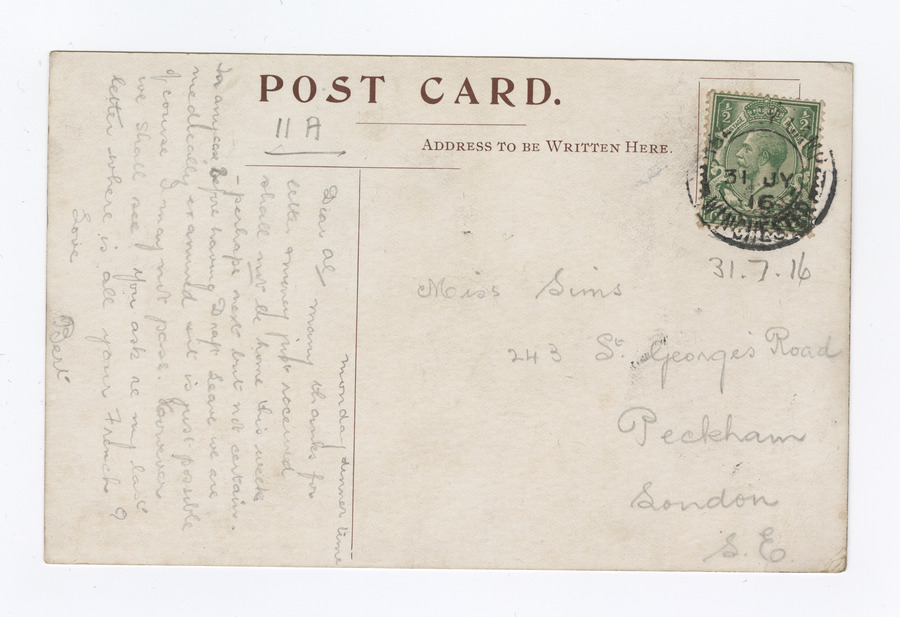 POST CARD.
11 A
ADDRESS TO BE WRITTEN HERE.
½ ½
31 JY
16
WINCHESTER
31.7.16
Miss Sims
243 St. George's Road
Peckham
London
S.E.
monday dinner time
Dear Al many thanks for
letter & money just received
shall not be home this week
- perhaps next but not certain.
In any case before having Draft Leave we are
medically examined and it is just possible
of course I may not pass. However
we shall see. You ask re my last
letter where is all your French?
Love
Bert